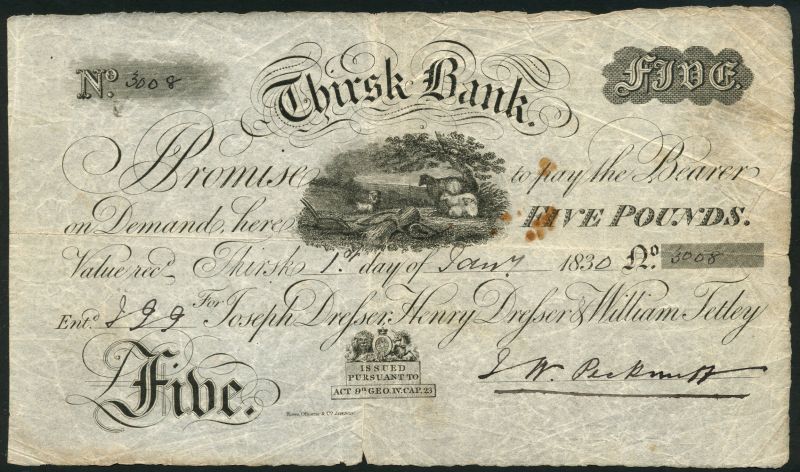 No. 3008 FIVE
Thirsk Bank.
I Promise to pay the Bearer
on Demand, here FIVE POUNDS.
Value recd. Thirsk 1st day of Jany 1830 No. 3008
Entd. For Joseph Dresser, Henry Dresser & William Tetley
Five.
ISSUED
PURSUANT TO
ACT 9th GEO. IV. CAP. 23
J W.